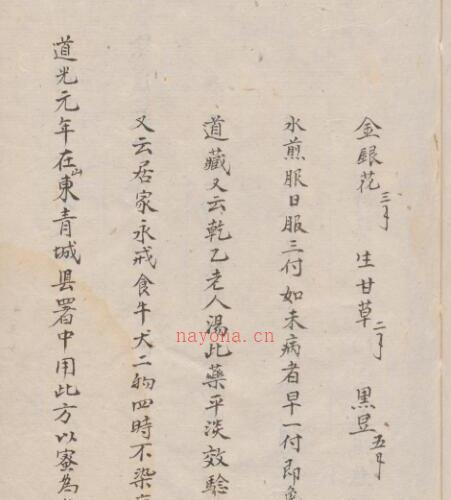 金銀花三錢　生甘草二錢　黑豆五錢
水煎服日服三付如未病者早一付即
道藏又云乾乙老人湯此藥平淡效驗
又云居家永戒食牛犬二物四時不染
道光元年在山東青城县署中用此方以蜜為
nayona.cn